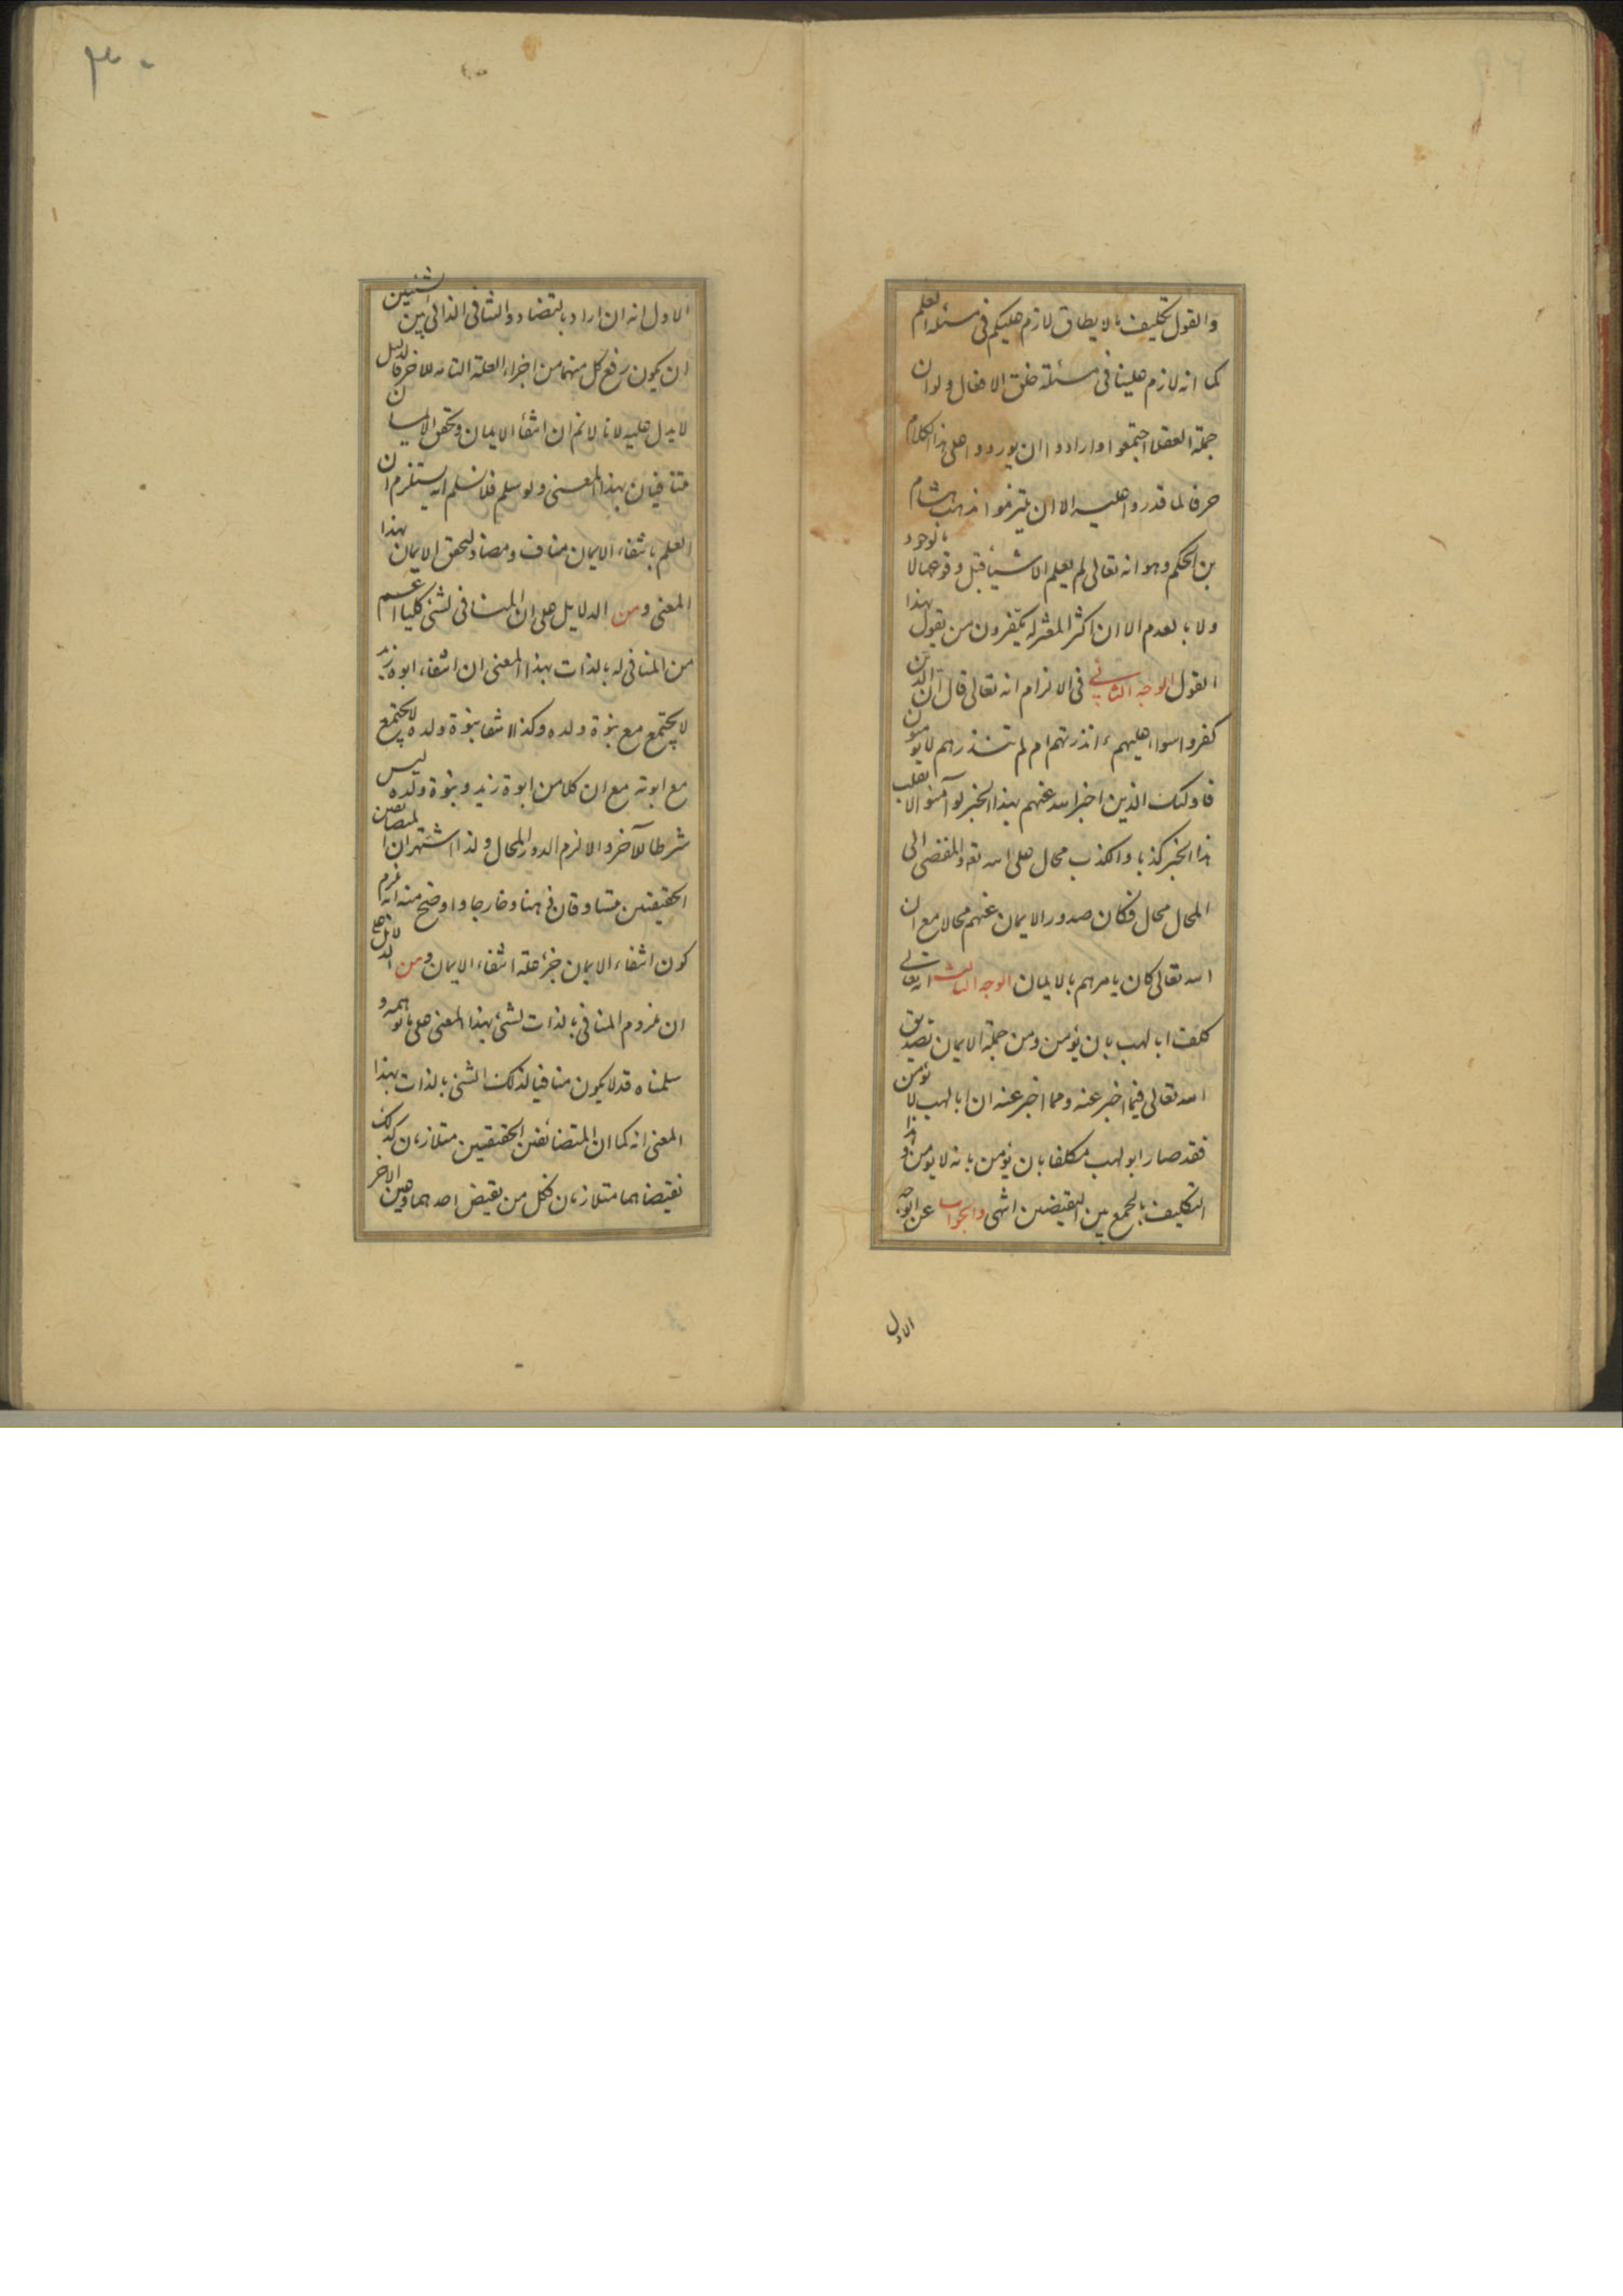 والقول بتكليف مالايطاق لازم عليكم فى مسئلة العلم
كما انه لازم علينا فى مسئلة خلق الافعال ولوان
جملة العقلا اجتمعوا وارادوا ان يوردوا على هذا الكلام
حرفا لما قدروا عليه الا ان يلتزموا مذهب هشام
بن الحكم وهو انه تعالى لم يعلم الاشيا قبل وقوعها لا بالوجود
ولا بالعدم الا ان اكثر المعتزلة يكفرون من يقول بهذا
القول الوجه الثانى فى الالزام انه تعالى قال ان الذين
كفروا سواء عليهم ءانذرتهم ام لم تنذرهم لا يؤمنون
فاولئك الذين اخبر الله عنهم بهذا الخبر لو آمنوا لانقلب
هذا الخبر كذبا والكذب محال على الله تعه والمفضى الى
المحال محال فكان صدور الايمان عنهم محالا مع ان
الله تعالى كان يامرهم بالايمان الوجه الثالث انه تعالى
كلف ابا لهب بان يؤمن ومن جملة الايمان تصديق
الله تعالى فيما اخبر عنه ومما اخبر عنه ان ابا لهب لا يؤمن
فقد صار ابو لهب مكلفا بان يؤمن بانه لا يومن وهذا
التكليف بالجمع بين النقيضين انتهى والجواب عن الوجه
الاول
٣٠
الاول انه ان اراد بالتضاد والتنافى الذاتى بين الشيئين
ان يكون رفع كل منهما من اجزاء العلة التامة للاخر فالدليل
لايدل عليه لانا لانم ان انتفأ الايمان وتحقق الايمان
متنافيان بهذا المعنى ولو سلم فلا نسلم انه يستلزم ان
العلم بانتفاء الايمان مناف ومضاد لتحقق الايمان بهذا
المعنى ومن الدلايل على ان المنافى لشئ كليا اعم
من المنافى له بالذات بهذا المعنى ان انتفاء ابوة زيد
لا يجتمع مع بنوة ولده وكذا انتفا بنوة ولده لا يجتمع
مع ابوته مع ان كلا من ابوة زيد وبنوة ولده ليس
شرطا للآخر والا لزم الدور المحال ولذا اشتهر ان المتضائفين
الحقيقين متساوقان ذهنا وخارجا واوضح منه انه لم
كون انتفاء الايمان جزء علة انتفاء الايمان ومن الدلائل على
ان ملزوم المنافى بالذات لشئ بهذا المعنى على ما توهمه و
سلمناه قد لا يكون منافيا لذلك الشئ بالذات بهذا
المعنى انه كما ان المتضائفين الحقيقين متلازمان كذلك
نقيضاهما متلازمان فكل من نقيض احدهما وعين الاخر